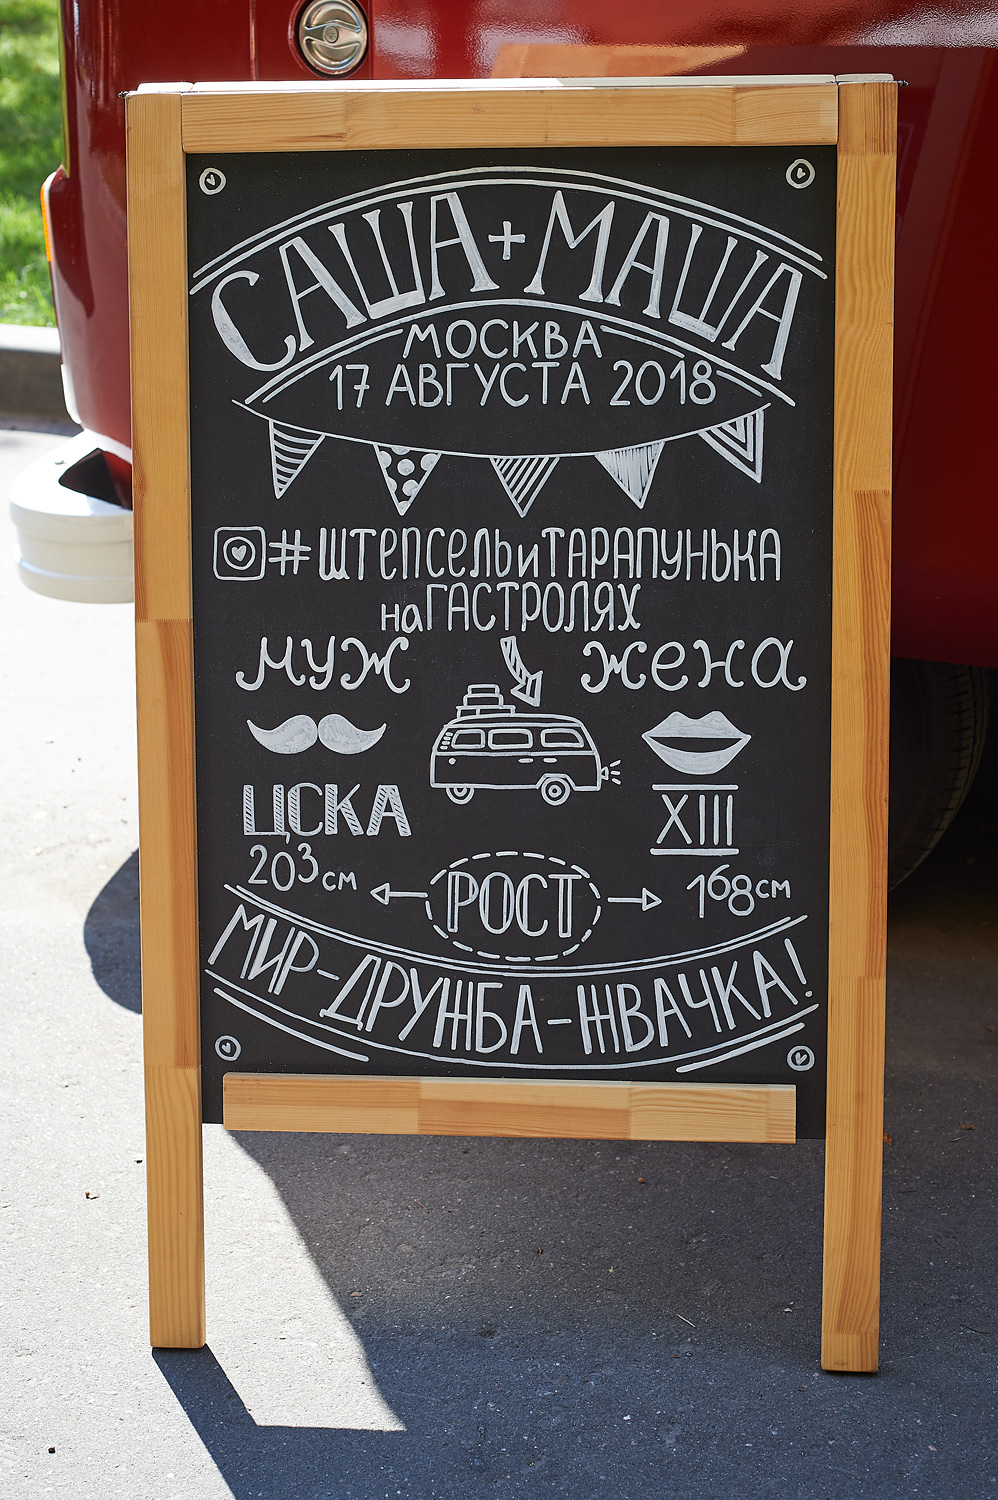 САША+МАША
МОСКВА
17 АВГУСТА 2018
#ШТЕПСЕЛЬиТАРАПУНЬКА
наГАСТРОЛЯХ
муж жена
ЦСКА XIII
203 см РОСТ 168 см
МИР-ДРУЖБА-ЖВАЧКА!